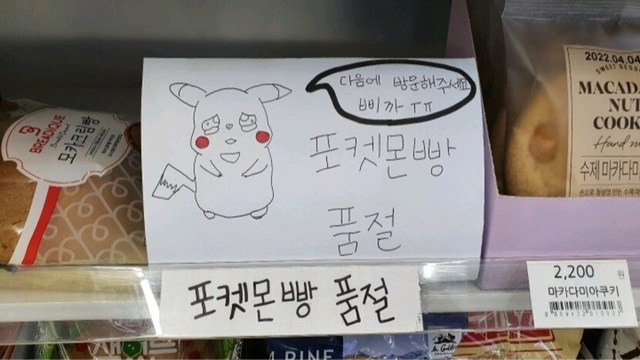 다음에 방문해주세요
삐까 ㅠㅠ
포켓몬빵
품절
포켓몬빵 품절
BREADIQUE
모카크림빵
2022.04.04
MACADA
NUT
COOK
Hand m
수제 마카다미
2,200 원
마카다미아쿠키